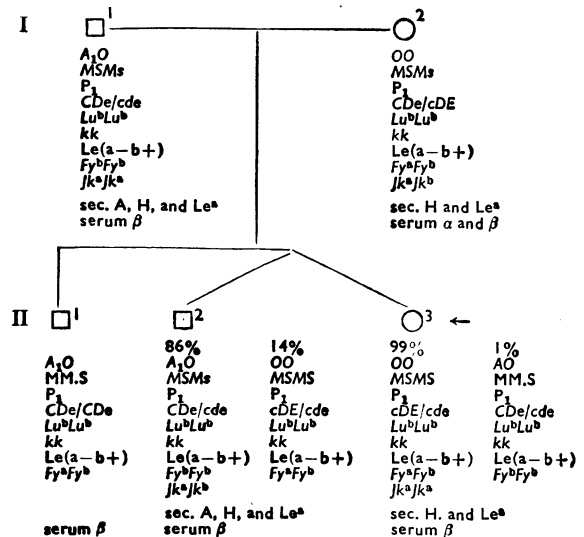 I
1
A₁O
MSMs
P₁
CDe/cde
LuᵇLuᵇ
kk
Le(a−b+)
FyᵇFyᵇ
JkᵃJkᵃ
sec. A, H, and Leᵃ
serum β
2
OO
MSMs
P₁
CDe/cDE
LuᵇLuᵇ
kk
Le(a−b+)
FyᵃFyᵇ
JkᵃJkᵇ
sec. H and Leᵃ
serum α and β
II
1
A₁O
MM.S
P₁
CDe/CDe
LuᵇLuᵇ
kk
Le(a−b+)
FyᵃFyᵇ
serum β
2
86%
A₁O
MSMs
P₁
CDe/cde
LuᵇLuᵇ
kk
Le(a−b+)
FyᵇFyᵇ
JkᵃJkᵇ
sec. A, H, and Leᵃ
serum β
14%
OO
MSMS
P₁
cDE/cde
LuᵇLuᵇ
kk
Le(a−b+)
FyᵃFyᵇ
3 ←
99%
OO
MSMS
P₁
cDE/cde
LuᵇLuᵇ
kk
Le(a−b+)
FyᵃFyᵇ
JkᵃJkᵃ
sec. H. and Leᵃ
serum β
1%
AO
MM.S
P₁
CDe/cde
LuᵇLuᵇ
kk
Le(a−b+)
FyᵇFyᵇ